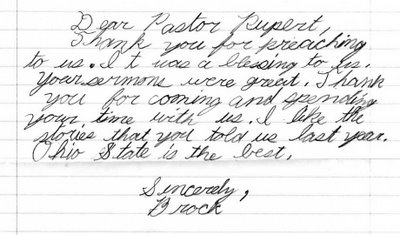 Dear Pastor Rupert,
Thank you for preaching
to us. It was a blessing to us.
Your sermons were great. Thank
you for coming and spending
your time with us. I like the
stories that you told us last year.
Ohio State is the best.
Sincerely,
Brock